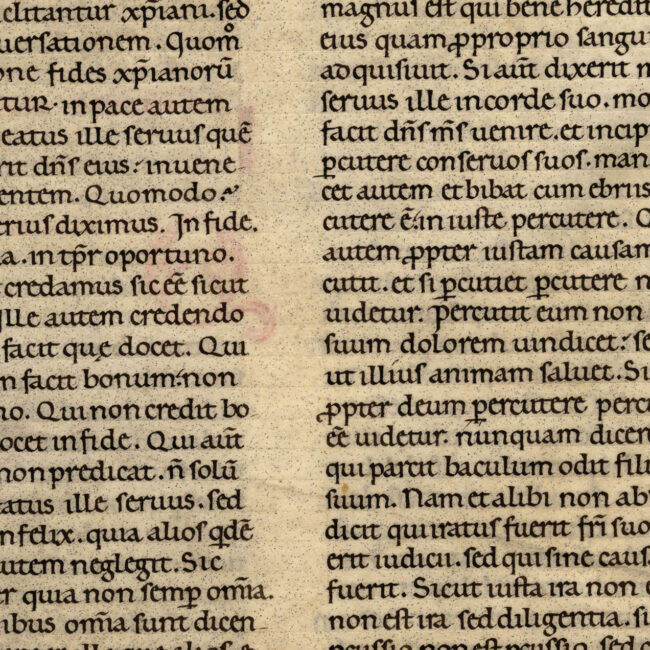 elitantur xp̄iani. sed
uersationem. Quomo᷒
one fides xp̄ianorū
tur. in pace autem
eatus ille seruus quē
rit dn̄s eius. inuene
entem. Quomodo.
erius diximus. In fide.
a. in tp̄r oportuno.
credamus sic eē sicut
Ille autem credendo
facit quę docet. Qui
n facit bonum. non
no. Qui non credit bo
ocet in fide. Qui aūt
non predicat. n̄ solū
atus ille seruus. sed
nfelix. quia alios qdē
utem neglegit. Sic
er quia non semꝑ om̄ia.
ibus om̄ia sunt dicen
magnus est qui bene heredit
eius quam ꝓ proprio sangu
adquisiuit. Si aūt dixerit m
seruus ille in corde suo. mo
facit dn̄s m̄s uenire. et incip
ꝑcutere conseruos suos. man
cet autem et bibat cum ebriis
cutere ē. in iuste percutere. Q
autem ꝓpter iustam causam
cutit. et si ꝑcutiet ꝑcutere n
uidetur. Percutit eum non
suum dolorem uindicet. se
ut illius animam saluet. Si
ꝓpter deum ꝑcutere perc
eē uidetur. nunquam dicer
qui parcit baculum odit fili
suum. Nam et alibi non ab
dicit qui iratus fuerit fr̄i suo
erit iudicii. sed qui sine caus
fuerit. Sicut iusta ira non e
non est ira sed diligentia. si